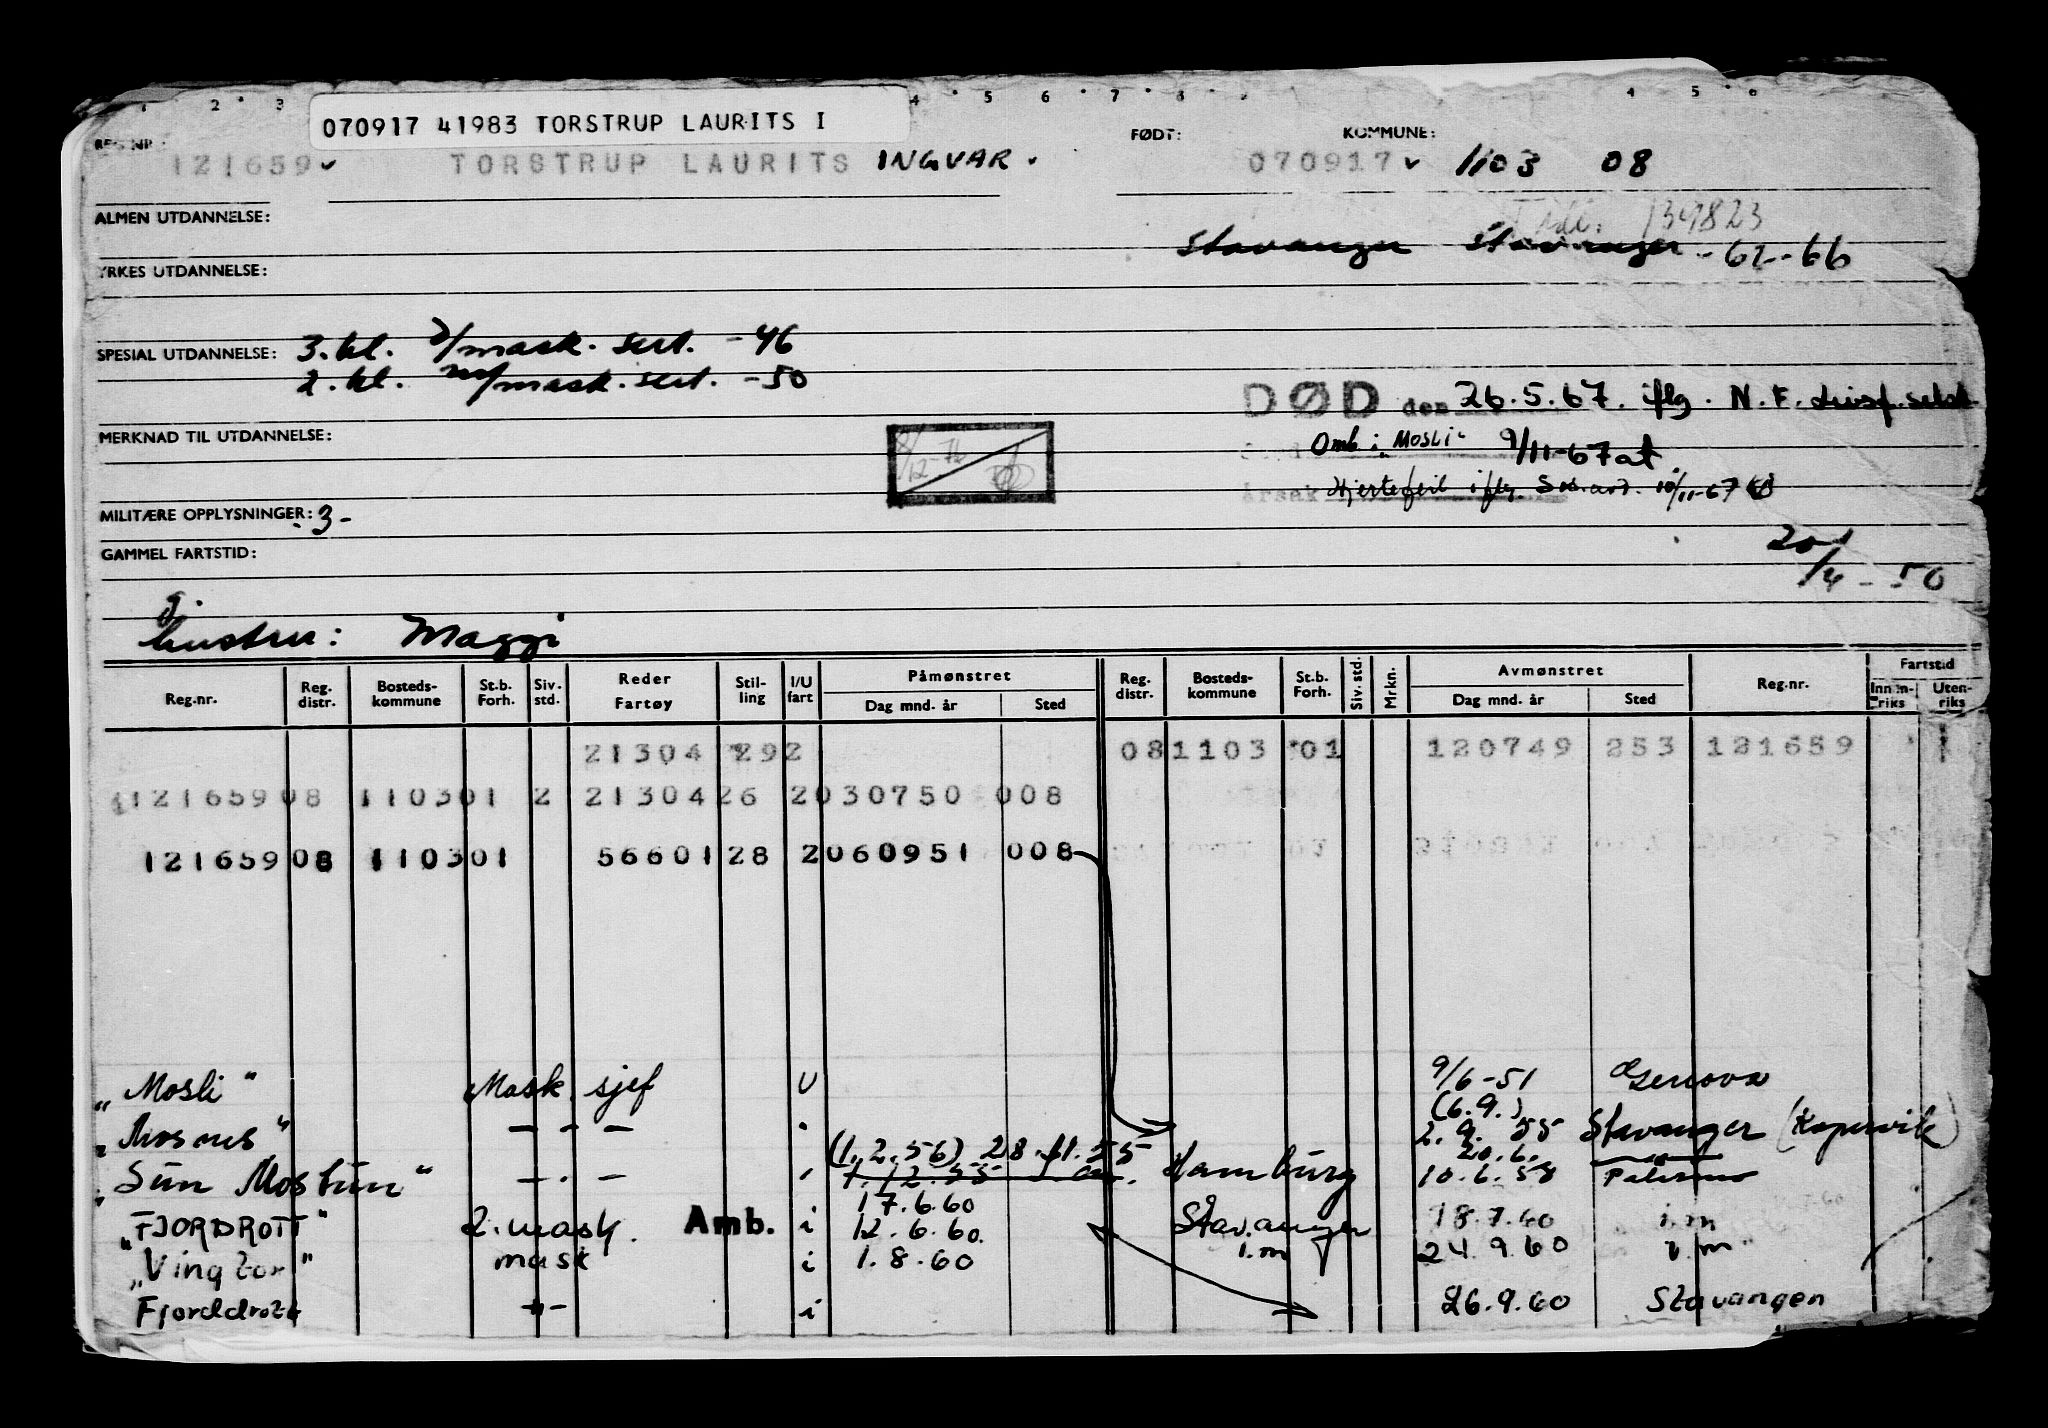 070917 41983 TORSTRUP LAURITS I
REG.NR.: FØDT: KOMMUNE:
121659 TORSTRUP LAURITS INGVAR. 070917 1103 08
ALMEN UTDANNELSE: 139823
Stavanger Stavanger - 62-66
YRKES UTDANNELSE:
SPESIAL UTDANNELSE: 3. kl. mask. sert. -46
2. kl. mask. sert. -50
DØD den 26.5.67. iflg. N.F.
MERKNAD TIL UTDANNELSE:
Omb. i "Mosli" 9/11-67
Årsak Hjertefeil iflg. 10/11-67
MILITÆRE OPPLYSNINGER: 3-
GAMMEL FARTSTID:
20/4-50
hustru: Maggi
Reg.nr. Reg. distr. Bosteds-kommune St.b. Forh. Siv. std. Reder Fartøy Stil-ling I/U fart Påmønstret Dag mnd. år Sted Reg. distr. Bosteds-kommune St.b. Forh. Siv. std. Mrkn. Avmønstret Dag mnd. år Sted Reg.nr. Fartstid Innen-riks Uten-riks
21304 292 08 1103 01 120749 253 121659
121659 08 1103 01 2 21304 26 2 030750 008
121659 08 1103 01 56601 28 2 060951 008
"Mosli" Mask. sjef U 9/6-51 Genova
(6.9.)
"Mosnes" - . - 2.9.55 Stavanger (Kopervik)
(1.2.56) 28.11.55 20.6.
"Sun Mostun" - . - 1.12.55 Hamburg 10.6.58 Palermo
17.6.60
"FJORDROTT" 2. mask. Amb. i 12.6.60. Stavanger 18.7.60 i.m
"Vingtor" mask i 1.8.60 i.m 24.9.60 i.m
Fjorddrott -"- i 26.9.60 Stavanger